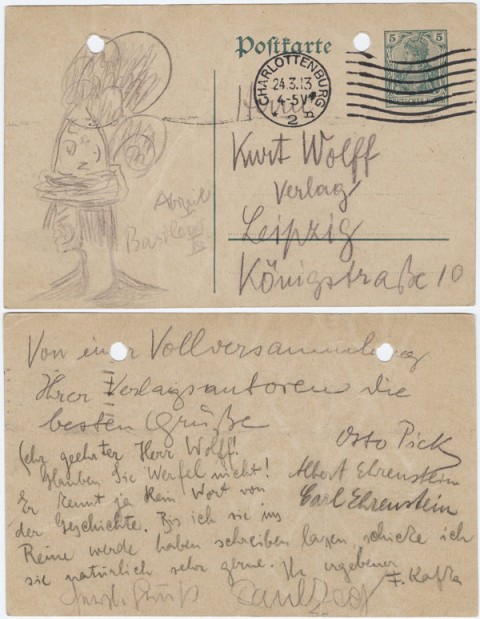 Postkarte
5 5
CHARLOTTENBURG
24.3.13
4-5V
* 2 a
Herrn
Kurt Wolff
Verlag
Leipzig
Königstraße 10
Basileus
III
Von einer Vollversammlung
Ihrer Verlagsautoren die
besten Grüße
Otto Pick
Albert Ehrenstein
Carl Ehrenstein
Sehr geehrter Herr Wolff!
Glauben Sie Werfel nicht!
Er kennt ja kein Wort von
der Geschichte. Bis ich sie ins
Reine werde haben schreiben lassen, schicke ich
sie natürlich sehr gerne. Ihr ergebener
F. Kafka